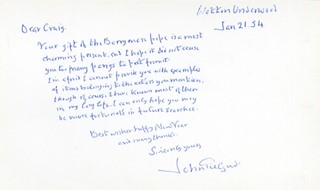 Wotton Underwood
Jan 21 54
Dear Craig.
Your gift of the Bergman pipe is a most
charming present, and I hope it did not cause
you too many pangs to part from it.
I'm afraid I cannot provide you with examples
of its belonging to the actors you mention,
though of course I have known most of them
in my long life. I can only hope you may
be more fortunate in future searches.
Best wishes happy New Year
and many thanks.
Sincerely yours
John Gielgud